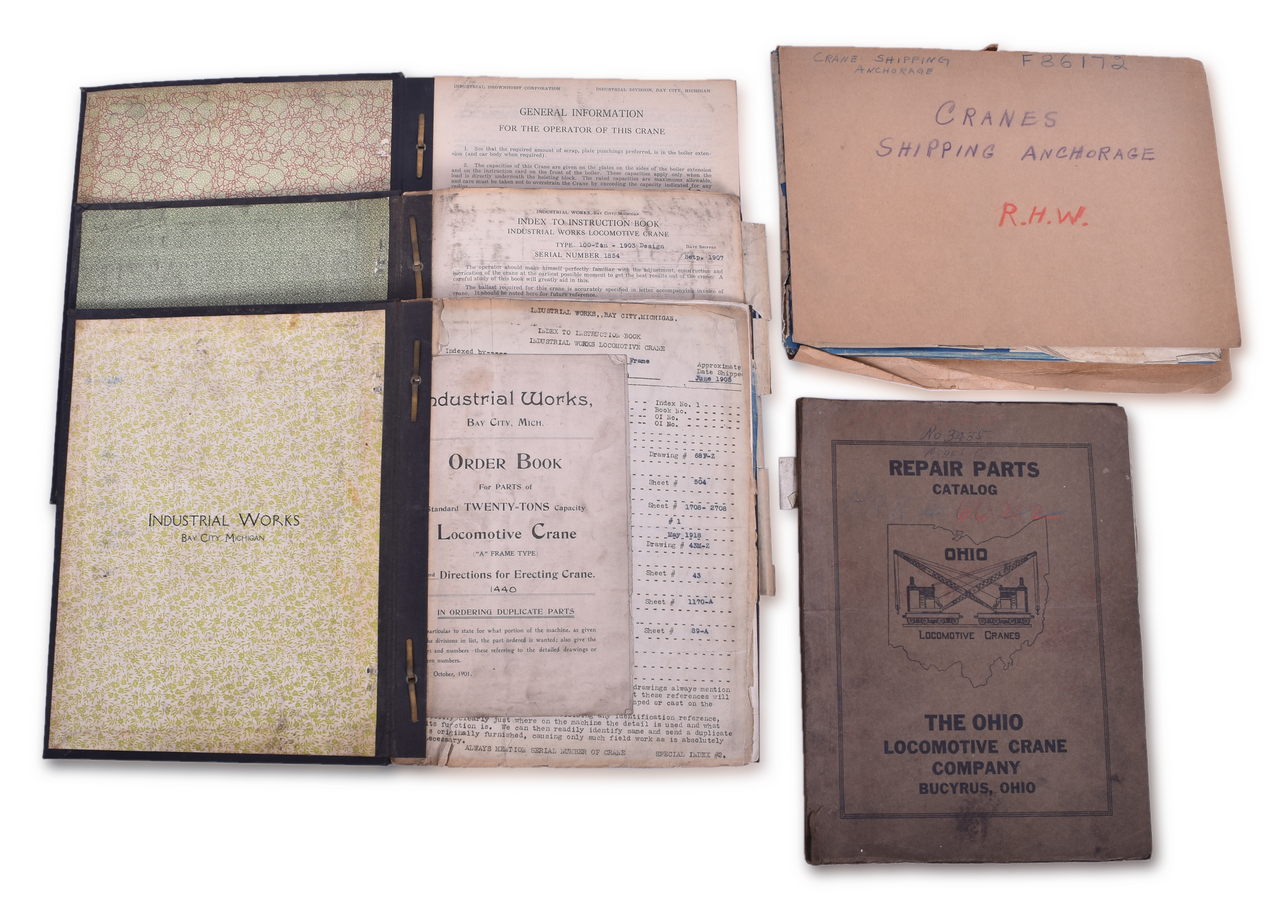 INDUSTRIAL BROWNHOIST CORPORATION INDUSTRIAL DIVISION, BAY CITY, MICHIGAN
GENERAL INFORMATION
FOR THE OPERATOR OF THIS CRANE
1. See that the required amount of scrap, plate punchings preferred, is in the boiler exten-
sion (and car body when required).
2. The capacities of this Crane are given on the plates on the sides of the boiler extension
and on the instruction card on the front of the boiler. These capacities apply only when the
load is directly underneath the hoisting block. The rated capacities are maximums allowable,
and care must be taken not to overstrain the Crane by exceeding the capacity indicated for any
INDUSTRIAL WORKS, BAY CITY, MICHIGAN
INDEX TO INSTRUCTION BOOK
INDUSTRIAL WORKS LOCOMOTIVE CRANE
TYPE 100-Ton - 1903 Design DATE SHIPPED
SERIAL NUMBER 1854 Setp. 1907
The operator should make himself perfectly familiar with the adjustment, construction and
lubrication of the crane at the earliest possible moment to get the best results out of the crane. A
careful study of this book will greatly aid in this.
The ballast required for this crane is accurately specified in letter accompanying invoice of
crane. It should be noted here for future reference.
INDUSTRIAL WORKS, BAY CITY, MICHIGAN.
INDEX TO INSTRUCTION BOOK
INDUSTRIAL WORKS LOCOMOTIVE CRANE
Indexed by
Frame
Approximate
Date Shippe
June 1905
Index No. 1
Book No.
OI No.
OI No.
Drawing # 68F-Z
Sheet # 504
Sheet # 1708- 2708
# 1
May 1918
Drawing # 43M-Z
Sheet # 43
Sheet # 1170-A
Sheet # 89-A
drawings always mention
t these references will
ped or cast on the
ing any identification reference,
clearly just where on the machine the detail is used and what
its function is. We can then readily identify same and send a duplicate
s originally furnished, causing only such field work as is absolutely
necessary.
ALWAYS MENTION SERIAL NUMBER OF CRANE SPECIAL INDEX #2.
ndustrial Works,
BAY CITY, MICH.
ORDER BOOK
For PARTS of
Standard TWENTY-TONS Capacity
Locomotive Crane
("A" FRAME TYPE)
Directions for Erecting Crane.
1440
IN ORDERING DUPLICATE PARTS
particular to state for what portion of the machine, as given
the divisions in list, the part ordered is wanted; also give the
and numbers—these referring to the detailed drawings or
numbers.
October, 1901.
INDUSTRIAL WORKS
BAY CITY MICHIGAN
CRANE SHIPPING
ANCHORAGE
F86172
CRANES
SHIPPING ANCHORAGE
R.H.W.
No 3935
REPAIR PARTS
CATALOG
OHIO
LOCOMOTIVE CRANES
THE OHIO
LOCOMOTIVE CRANE
COMPANY
BUCYRUS, OHIO